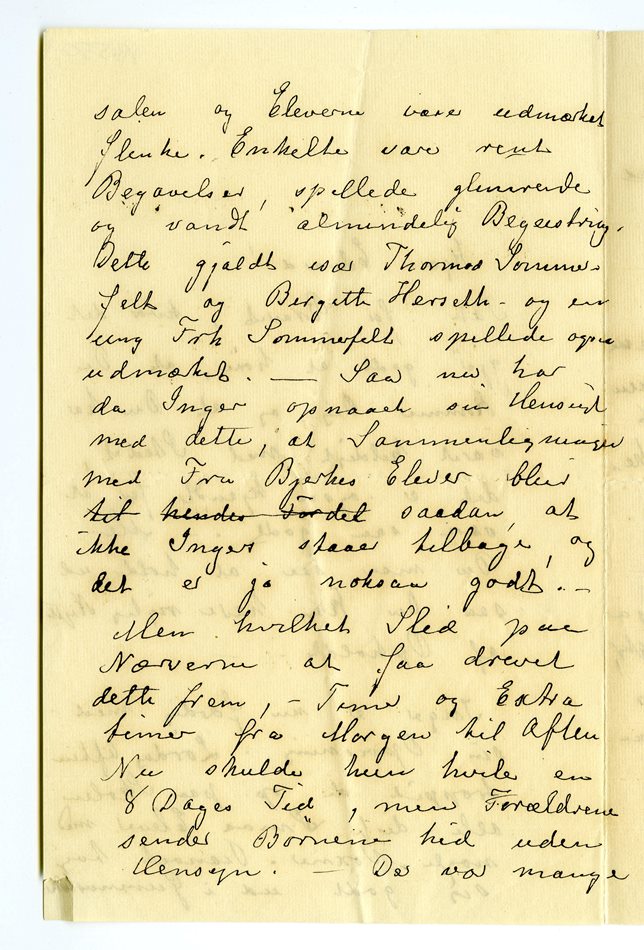 salen og Eleverne vare udmærket
flinke. Enkelte vare rent
Begavelser, spillede glimrende
og vandt almindelig Begeistring.
Dette gjaldt især Thormod Sommer-
felt og Bergitte Herseth - og en
ung Frk Sommerfelt spillede ogsaa
udmærket. — Saa nu har
da Inger opnaaet sin Hensigt
med dette, at Sammenligningen
med Fru Bjerkes Elever blir
til hendes Fordel saadan, at
ikke Ingers staar tilbage, og
det er jo noksaa godt. —
Men hvilket Slid paa
Nærverne at faa drevet
dette frem, - Time og Extra
timer fra Morgen til Aften
Nu skulde hun hvile en
8 Dages Tid, men Forældrene
sender Børnene hid uden
Hensyn. — Der var mange